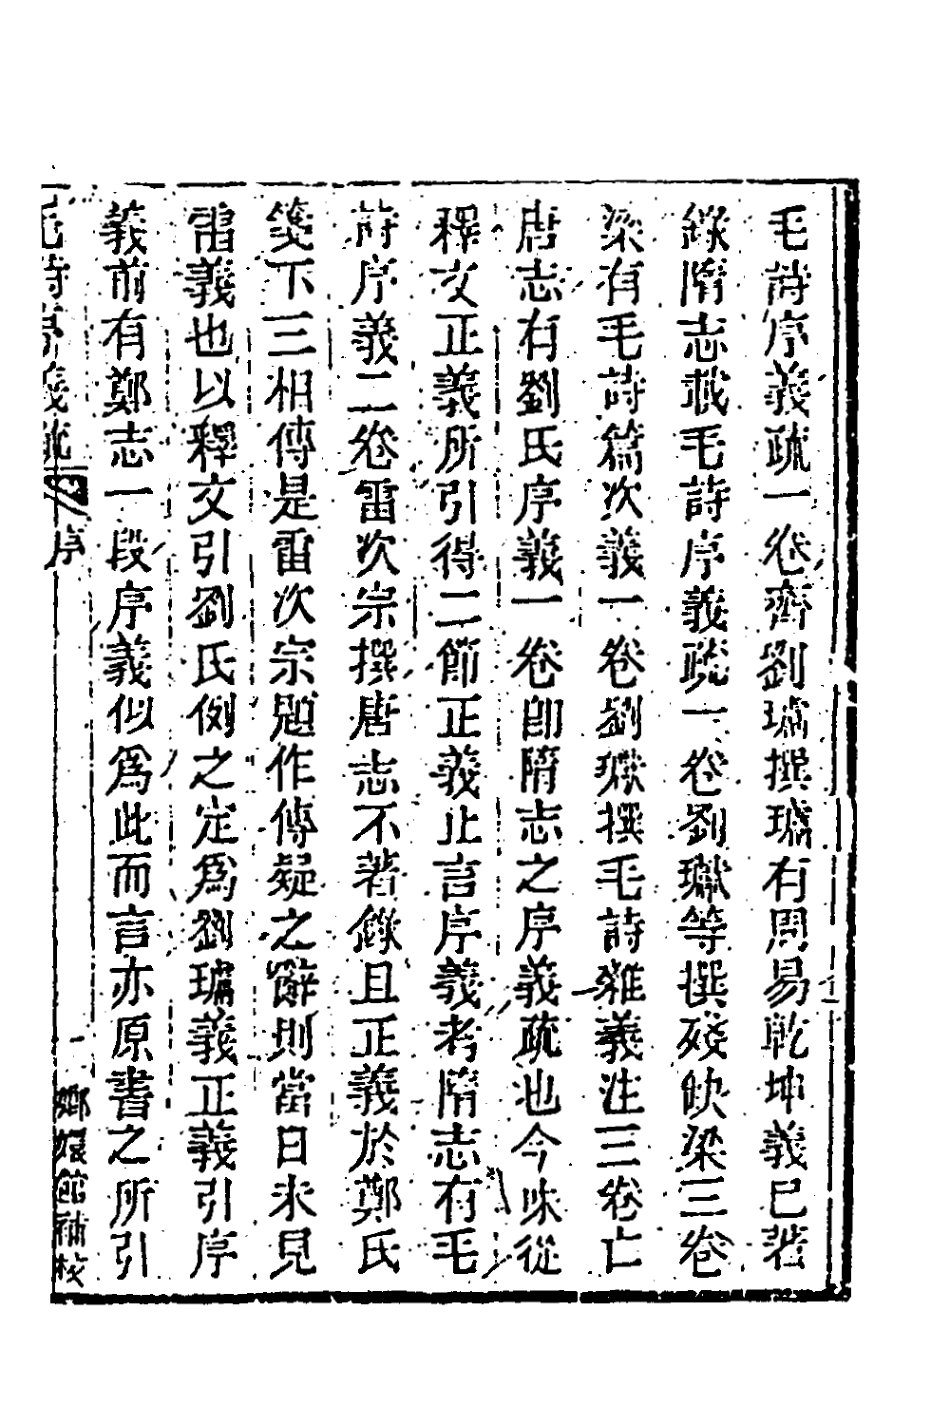 毛詩序義疏一卷齊劉瓛撰瓛有周易乾坤義已著
錄隋志載毛詩序義疏一卷劉瓛等撰殘缺梁三卷
梁有毛詩篇次義一卷劉瓛撰毛詩雜義注三卷亡
唐志有劉氏序義一卷卽隋志之序義疏也今味從
釋文正義所引得二節正義止言序義考隋志有毛
詩序義二卷雷次宗撰唐志不著錄且正義於鄭氏
箋下三相傳是雷次宗題作傳疑之辭則當日未見
雷義也以釋文引劉氏例之定爲劉瓛義正義引序
義前有鄭志一段序義似爲此而言亦原書之所引
毛詩序義疏 序 嫏嬛館補校